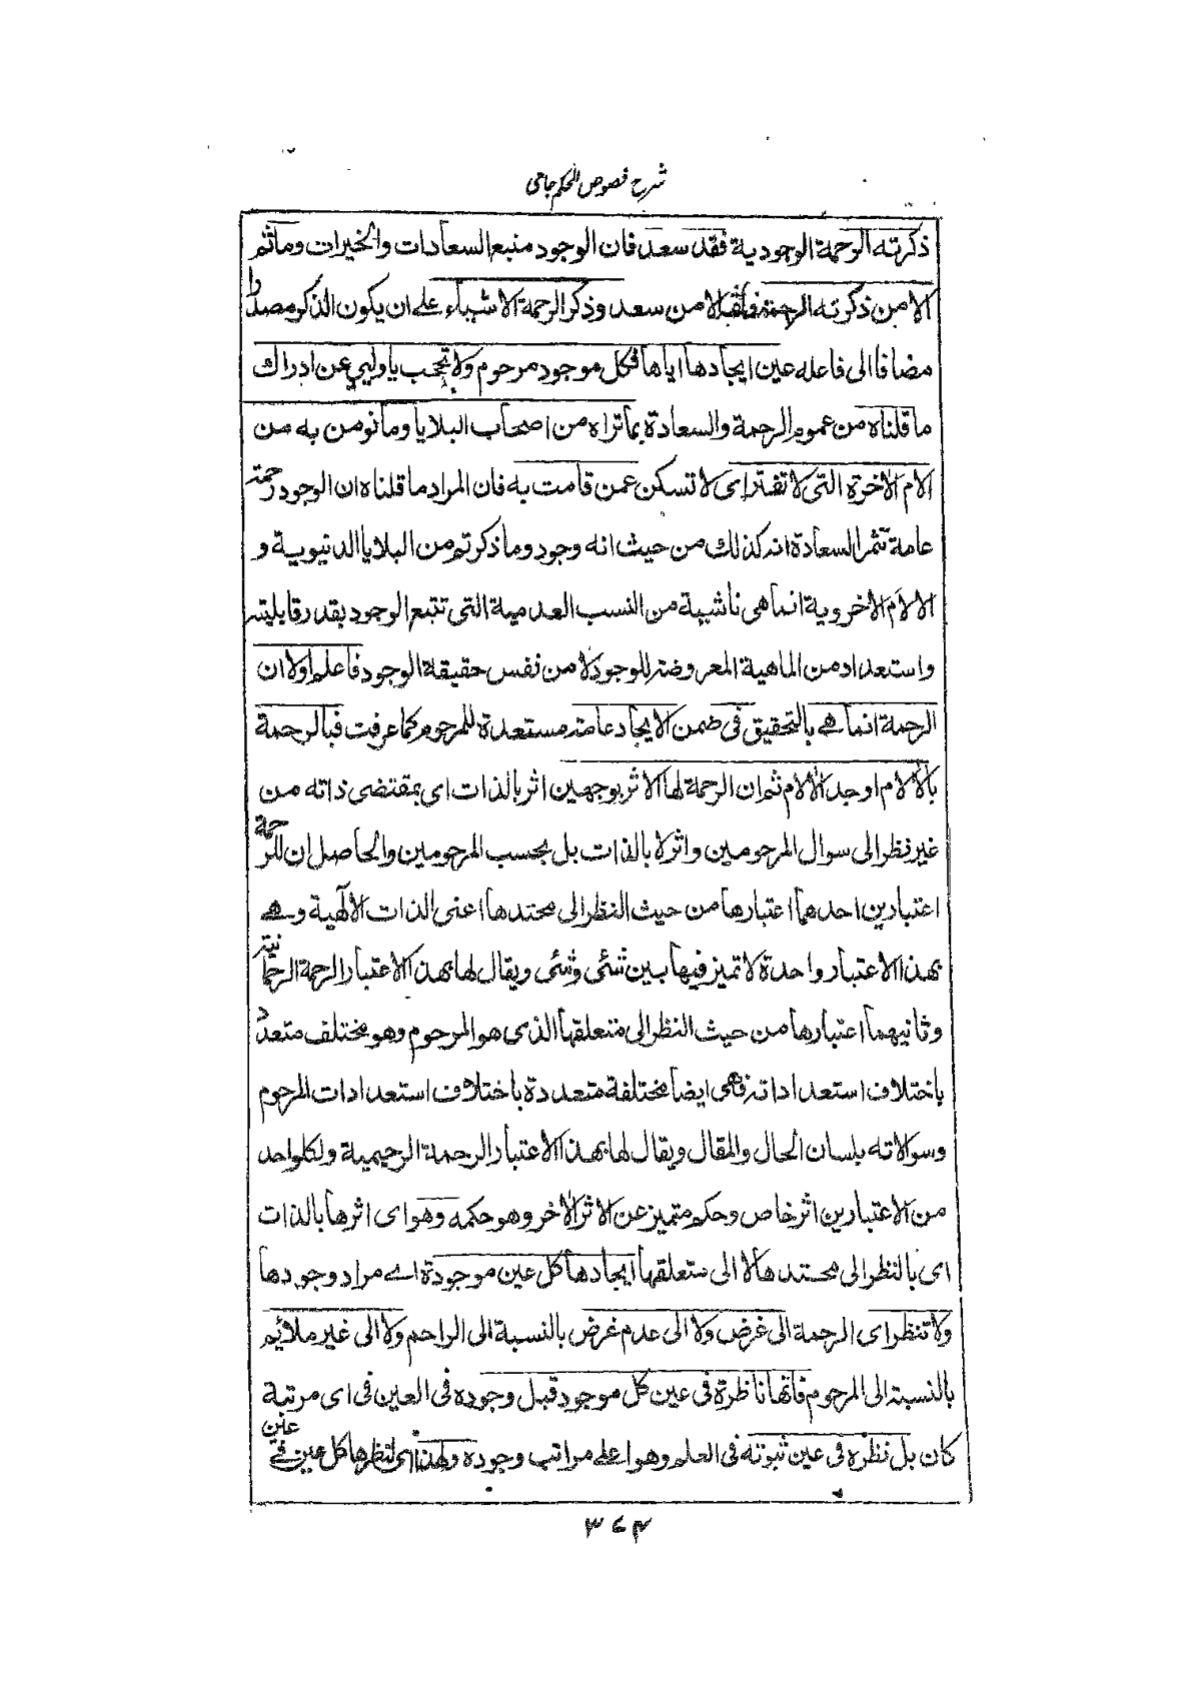 شرح فصوص الحکم جامی
ذکرته الرحمة الوجودیة فقد سعد فان الوجود منبع السعادات والخیرات وما ثم
الا من ذکرته الرحمة فما ثم الا من سعد وذکر الرحمة الاشیاء علی ان یکون الذکر مصدرا
مضافا الی فاعله عین ایجادها ایاها فکل موجود مرحوم ولا تحجب یا ولیی عن ادراک
ما قلناه من عموم الرحمة والسعادة بما تراه من اصحاب البلایا وما نومن به من
الام الاخرة التی لا تفتر ای لا تسکن عمن قامت به فان المراد مما قلناه ان الوجود رحمة
عامة تثمر السعادة انه کذلک من حیث انه وجود وما ذکرتم من البلایا الدنیویة و
الالام الاخرویة انما هی ناشیة من النسب العدمیة التی تتبع الوجود بقدر قابلیته
واستعداد من الماهیة المعروضة للوجود لا من نفس حقیقة الوجود فاعلم اولا ان
الرحمة انما هے بالتحقیق فی ضمن الایجاد عامة مستعدة للمرحوم کما عرفت فبالرحمة
بالالام اوجد الالام ثم ان الرحمة لها الاثر بوجهین اثر بالذات ای بمقتضی ذاته من
غیر نظر الی سوال المرحومین واثر لا بالذات بل بحسب المرحومین والحاصل ان للرحمة
اعتبارین احدهما اعتبارها من حیث النظر الی محتدها اعنی الذات الآلهیة وهے
بهذا الاعتبار واحدة لا تمیز فیها بین شئی وشئی ویقال لها بهذا الاعتبار الرحمة الرحمانیة
وثانیهما اعتبارها من حیث النظر الی متعلقها الذی هو المرحوم وهو مختلف متعدد
باختلاف استعداداته فهی ایضا مختلفة متعددة باختلاف استعدادات المرحوم
وسوالاته بلسان الحال والمقال ویقال لها بهذا الاعتبار الرحمة الرحیمیة ولکل واحد
من الاعتبارین اثر خاص وحکم متمیز عن الاثر الاخر وهو حکمه وهو ای اثرها بالذات
ای بالنظر الی محتدها لا الی متعلقها ایجادها کل عین موجودة اے مراد وجودها
ولا تنظر ای الرحمة الی غرض ولا الی عدم غرض بالنسبة الی الراحم ولا الی غیر ملائیم
بالنسبة الی المرحوم فانها ناظرة فی عین کل موجود قبل وجوده فی العین فی ای مرتبة
کان بل نظره فی عین ثبوته فی العلم وهو اعلے مراتب وجوده ولهذا ای لنظرها کل عین فے عین
۳۶۴